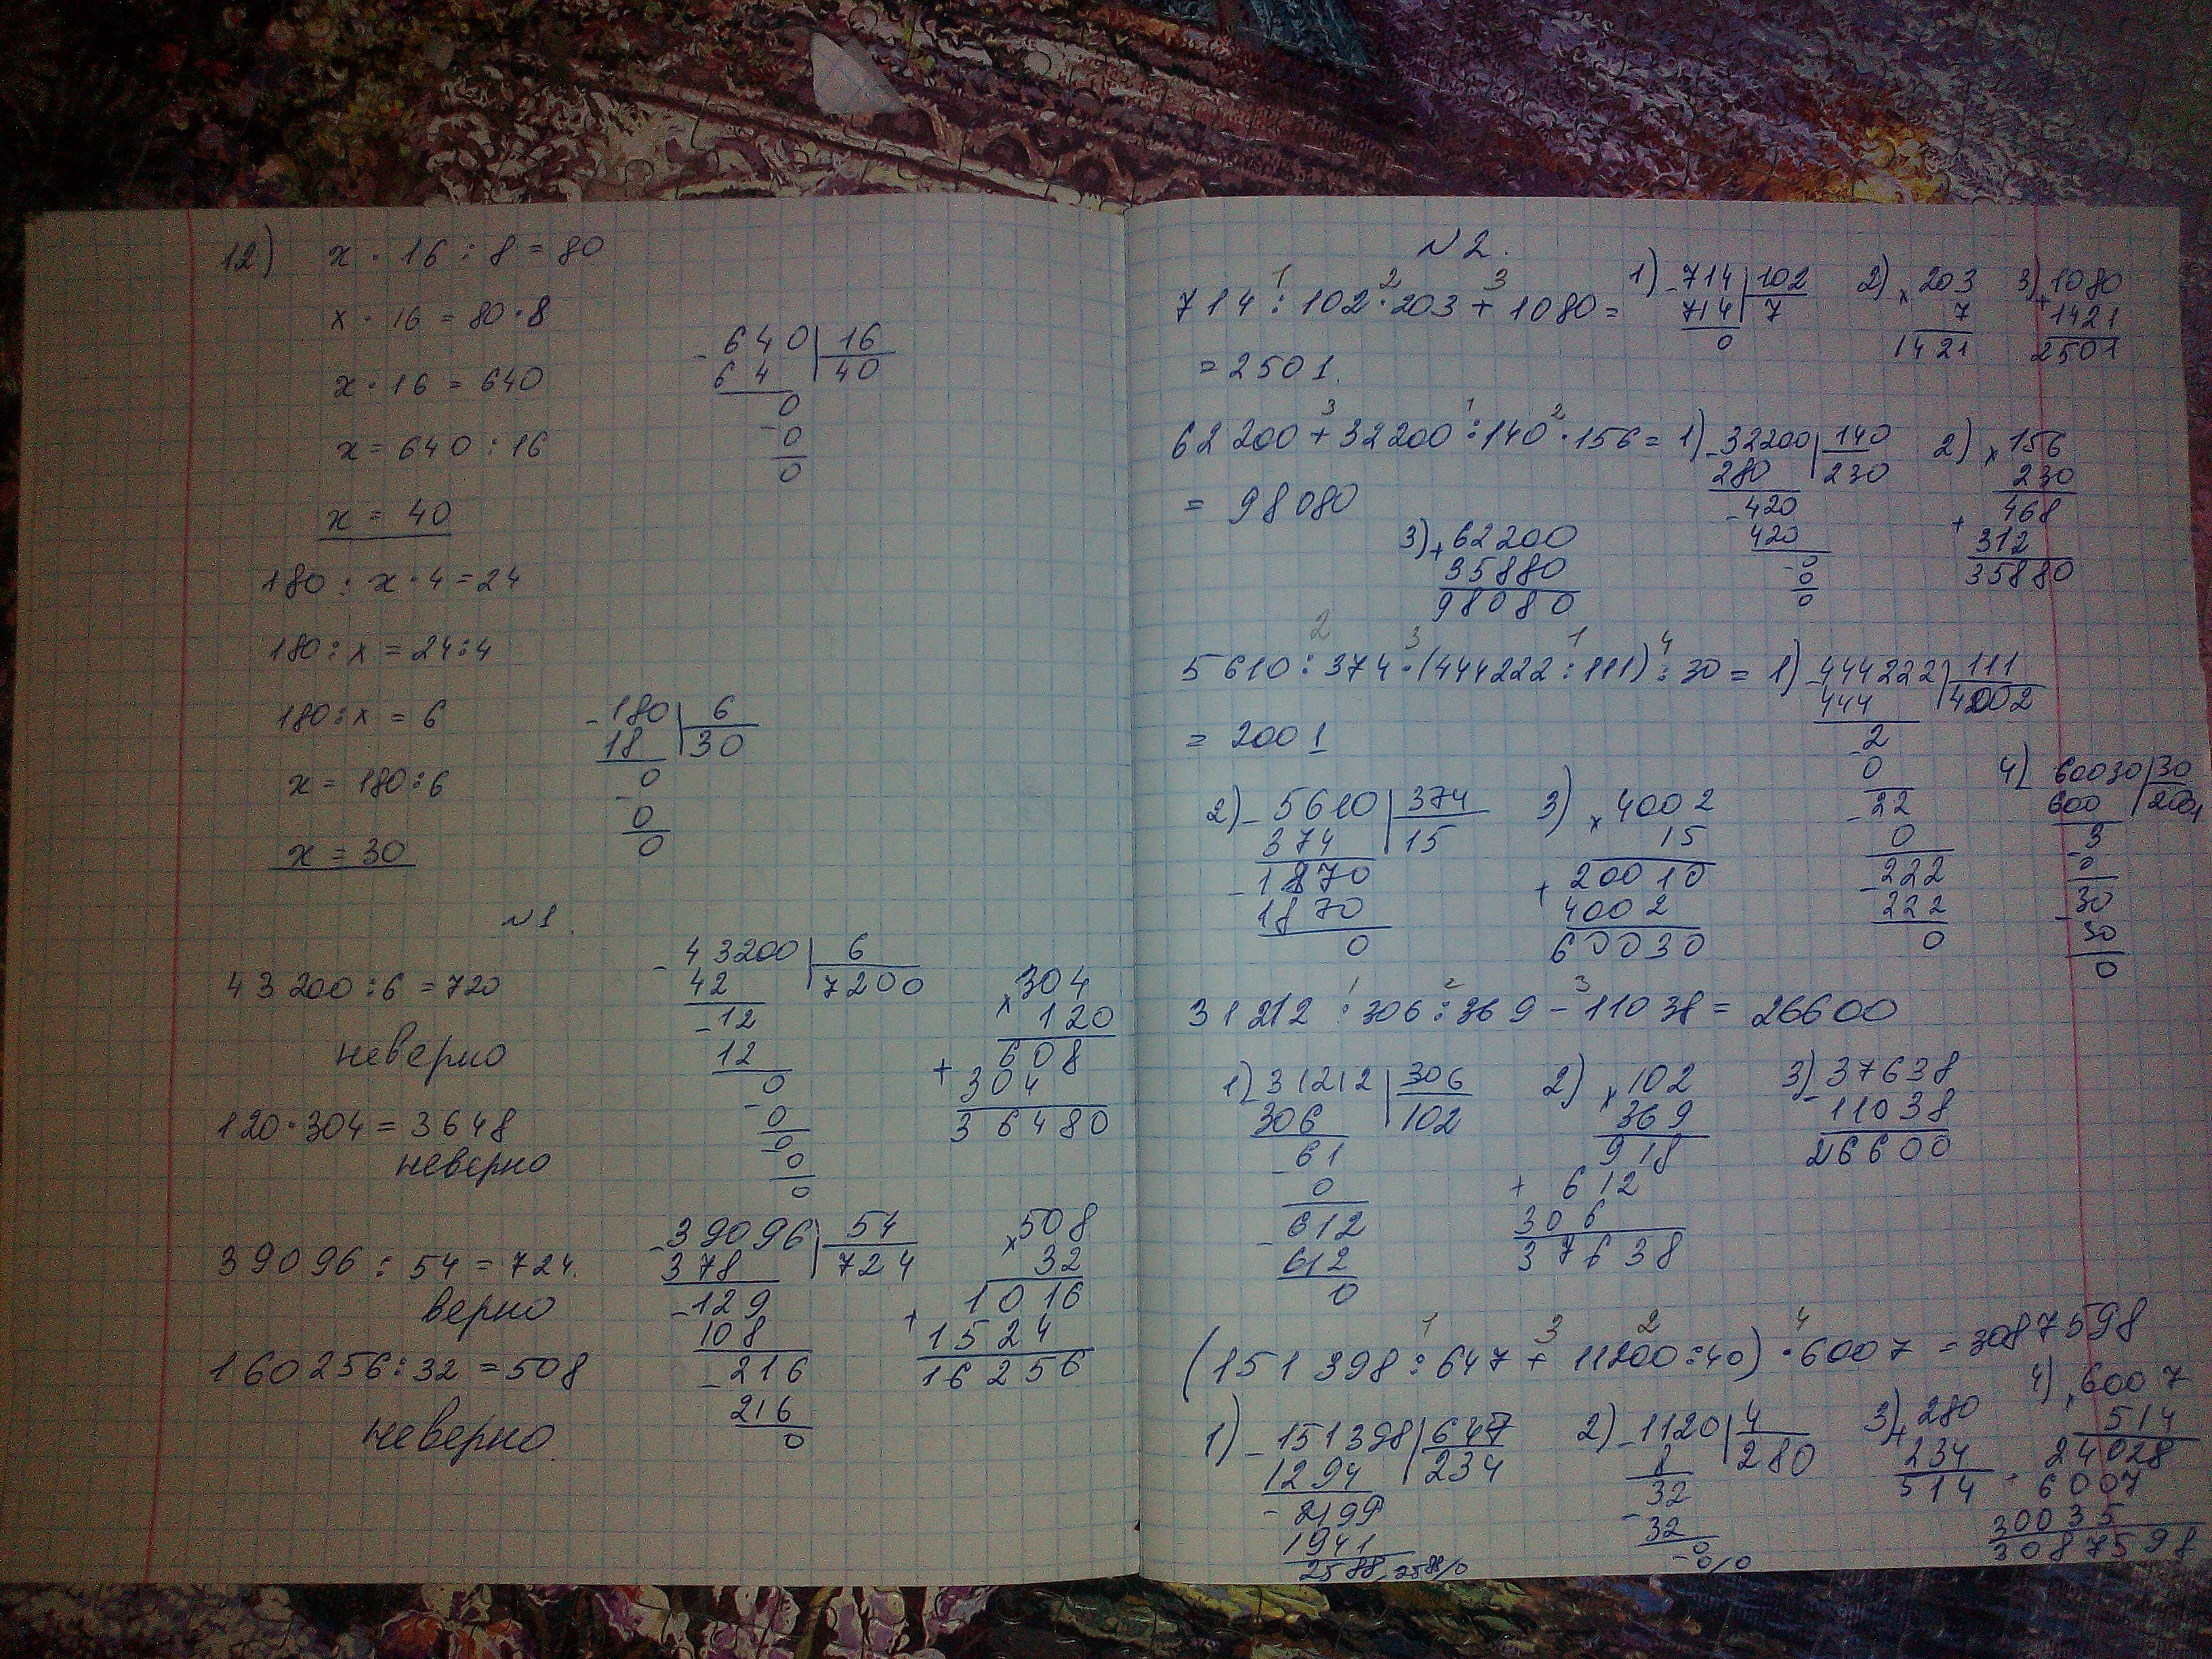 12) x · 16 : 8 = 80
x · 16 = 80 · 8
x · 16 = 640
x = 640 : 16
x = 40
- 640 | 16
64 | 40
0
- 0
0
180 : x · 4 = 24
180 : x = 24 : 4
180 : x = 6
x = 180 : 6
x = 30
- 180 | 6
18 | 30
0
- 0
0
№1.
43200 : 6 = 720
неверно
- 43200 | 6
42 | 7200
- 12
12
0
- 0
0
- 0
0
120 · 304 = 3648
неверно
× 304
120
608
+ 304
36480
39096 : 54 = 724.
верно
- 39096 | 54
378 | 724
- 129
108
- 216
216
0
160256 : 32 = 508
неверно.
× 508
32
1016
+ 1524
16256
№2.
1 2 3
714 : 102 · 203 + 1080 =
= 2501.
1) - 714 | 102
714 | 7
0
2) × 203
7
1421
3) + 1080
1421
2501
3 1 2
62200 + 32200 : 140 · 156 =
= 98080
1) - 32200 | 140
280 | 230
- 420
420
- 0
0
0
2) × 156
230
468
+ 312
35880
3) + 62200
35880
98080
2 3 1 4
5610 : 374 · (444222 : 111) : 30 =
= 2001
1) - 444222 | 111
444 | 4002
- 2
0
- 22
0
- 222
222
0
2) - 5610 | 374
374 | 15
- 1870
1870
0
3) × 4002
15
+ 20010
4002
60030
4) 60030 | 30
600 | 2001
- 3
0
- 30
30
0
1 2 3
31212 : 306 : 369 - 11038 = 26600
1) - 31212 | 306
306 | 102
- 61
0
- 612
612
0
2) × 102
369
918
+ 612
306
37638
3) - 37638
11038
26600
1 3 2 4
(151398 : 647 + 11200 : 40) · 6007 = 3087598
1) - 151398 | 647
1294 | 234
- 2199
1941
2588
2) - 1120 | 4
8 | 280
- 32
32
- 0
3) + 280
234
514
4) 6007
514
24028
6007
30035
3087598